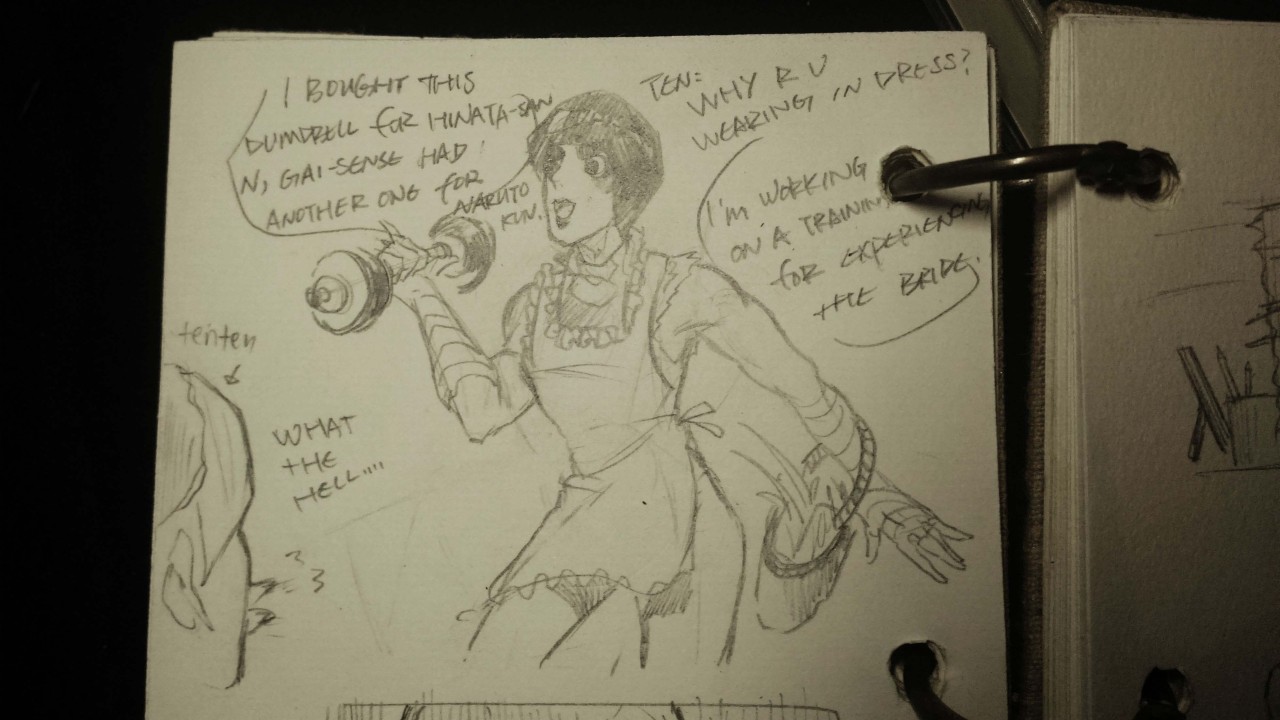 I BOUGHT THIS
DUMDRELL FOR HINATA-SAN
N, GAI-SENSE HAD
ANOTHER ONE FOR
NARUTO
KUN.
TEN:
WHY R U
WEARING IN DRESS?
I'M WORKING
ON A TRAINING
FOR EXPERIENCIN,
THE BRIDE.
tenten
WHAT
THE
HELL.....